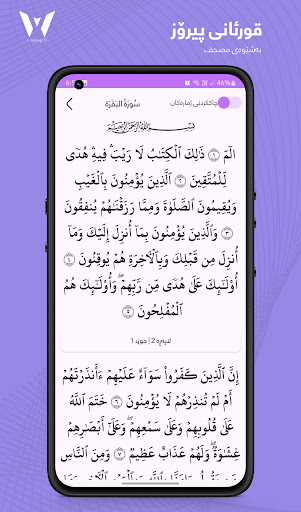 قورئانی پیرۆز
بەشێوەی مصحف
46%
چاککردنی ژمارەکان
سُورَةُ البَقَرَة
بِسْمِ ٱللَّهِ ٱلرَّحْمَٰنِ ٱلرَّحِيمِ
الٓمٓ ۝١ ذَٰلِكَ ٱلْكِتَٰبُ لَا رَيْبَ ۛ فِيهِ ۛ هُدًى
لِّلْمُتَّقِينَ ۝٢ ٱلَّذِينَ يُؤْمِنُونَ بِٱلْغَيْبِ
وَيُقِيمُونَ ٱلصَّلَوٰةَ وَمِمَّا رَزَقْنَٰهُمْ يُنفِقُونَ
۝٣ وَٱلَّذِينَ يُؤْمِنُونَ بِمَآ أُنزِلَ إِلَيْكَ وَمَآ
أُنزِلَ مِن قَبْلِكَ وَبِٱلْءَاخِرَةِ هُمْ يُوقِنُونَ ۝٤
أُو۟لَٰٓئِكَ عَلَىٰ هُدًى مِّن رَّبِّهِمْ ۖ وَأُو۟لَٰٓئِكَ هُمُ
ٱلْمُفْلِحُونَ ۝٥
لاپەڕە 2 | جوزء 1
إِنَّ ٱلَّذِينَ كَفَرُوا۟ سَوَآءٌ عَلَيْهِمْ ءَأَنذَرْتَهُمْ
أَمْ لَمْ تُنذِرْهُمْ لَا يُؤْمِنُونَ ۝٦ خَتَمَ ٱللَّهُ
عَلَىٰ قُلُوبِهِمْ وَعَلَىٰ سَمْعِهِمْ ۖ وَعَلَىٰٓ أَبْصَٰرِهِمْ
غِشَٰوَةٌ ۖ وَلَهُمْ عَذَابٌ عَظِيمٌ ۝٧ وَمِنَ ٱلنَّاسِ